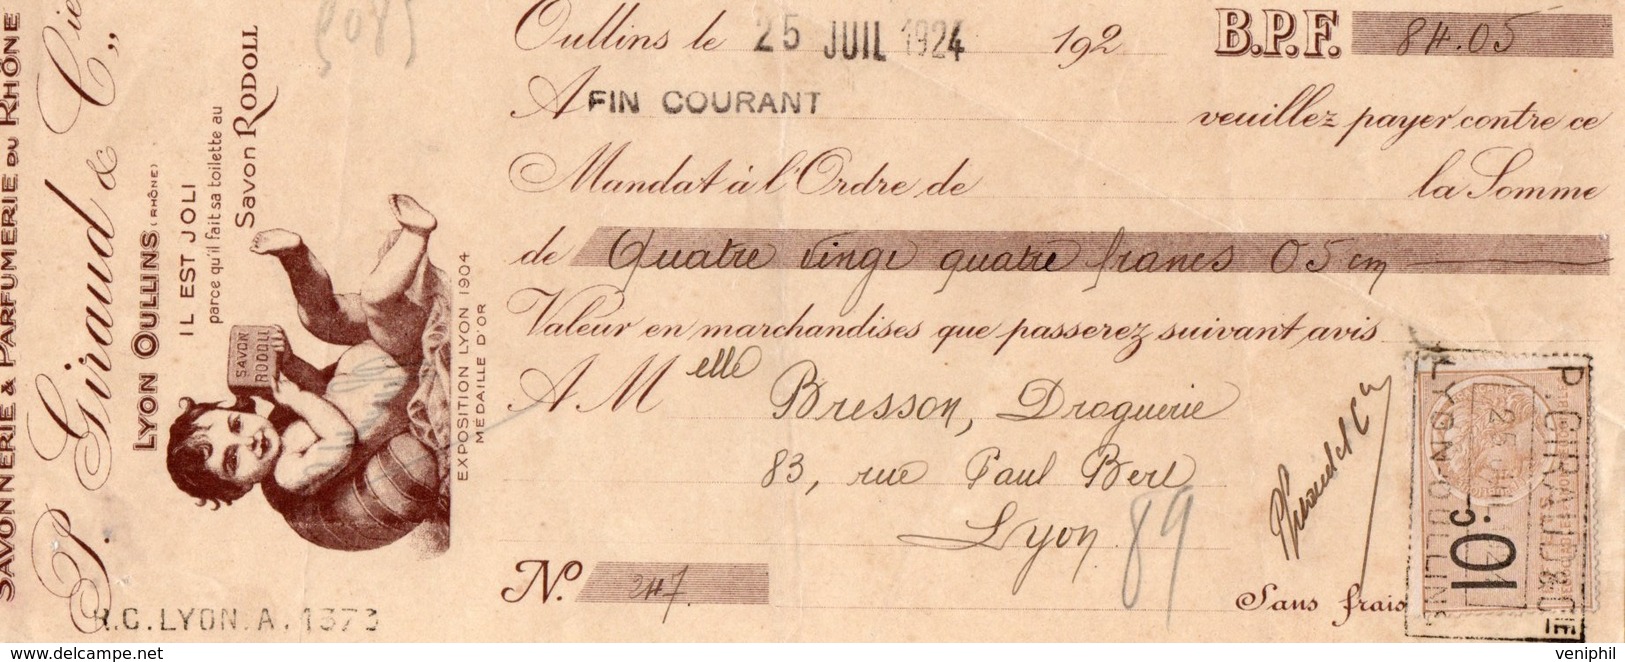 SAVONNERIE & PARFUMERIE DU RHÔNE
P. Giraud & Cie „
LYON OULLINS (RHÔNE)
IL EST JOLI
parce qu'il fait sa toilette au
SAVON RODOLL
SAVON
RODOLL
EXPOSITION LYON 1904
MÉDAILLE D'OR
R.C. LYON. A. 1373
Oullins le 25 JUIL 1924 192 B.P.F. 84.05
A FIN COURANT veuillez payer contre ce
Mandat à l'Ordre de la Somme
de Quatre vingt quatre francs 05 cm
Valeur en marchandises que passerez suivant avis
A Melle Bresson, Droguerie
83, rue Paul Bert
Lyon
89
No. 247
Sans frais
Giraud & Cie
P. GIRAUD & CIE
25 JUIL
LYON-OULLINS
veniphil